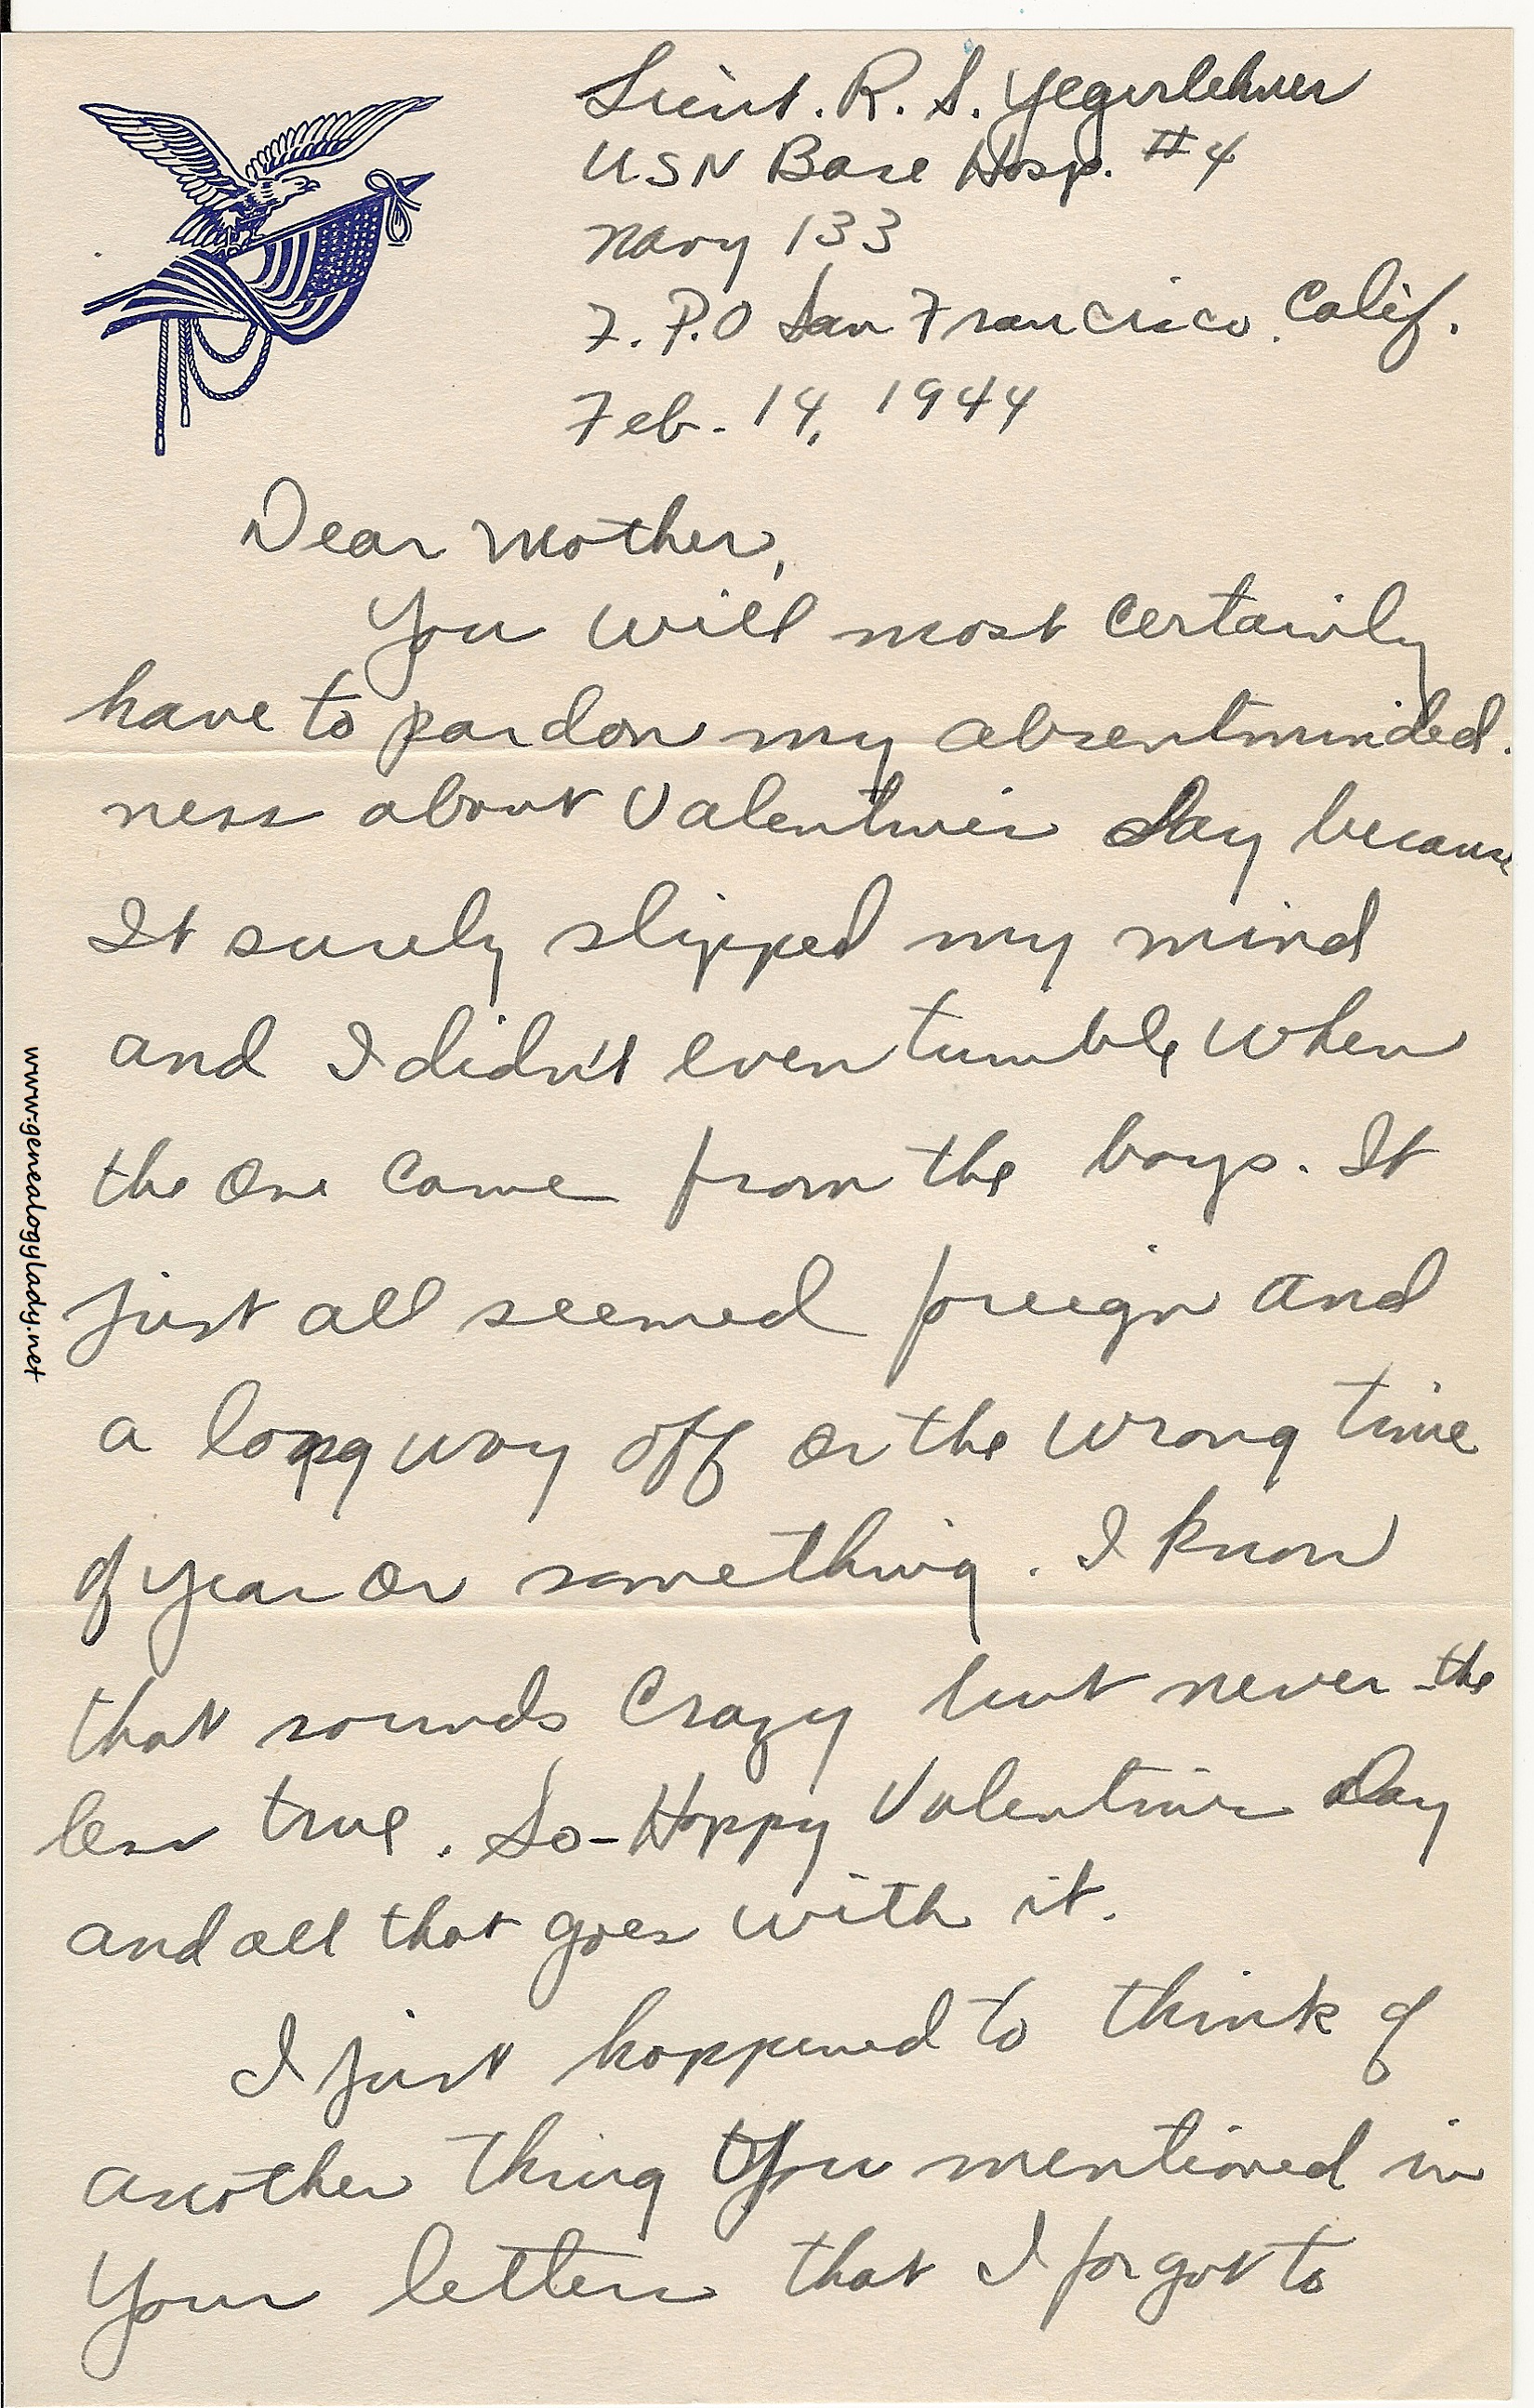 Lieut. R. S. Yegerlehner
USN Base Hosp. #4
Navy 133
F. P.O San Francisco. Calif.
Feb. 14, 1944
Dear Mother,
You will most certainly
have to pardon my absentminded-
ness about Valentines Day because
It surely slipped my mind
and I didn't even tumble when
the one came from the boys. It
just all seemed foreign and
a long way off or the wrong time
of year or something. I know
that sounds crazy but never-the
less true. So-Happy Valentine Day
and all that goes with it.
I just happened to think of
another thing you mentioned in
your letters that I forgot to
www.genealogylady.net